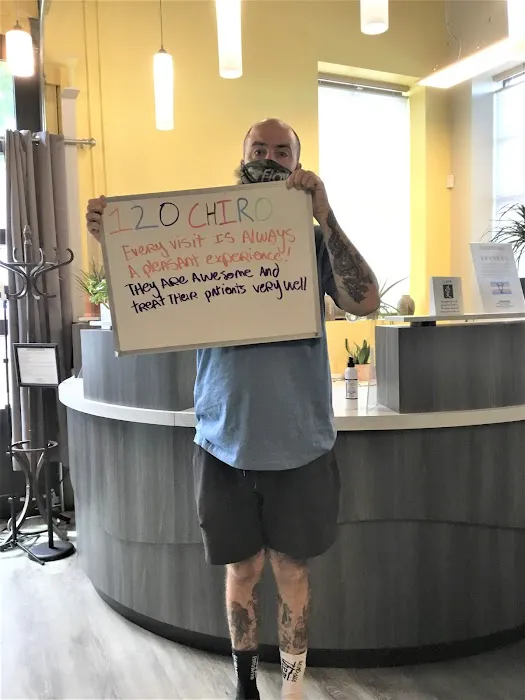 120 CHIRO
Every visit is Always
A pleasant experience!!
They are Awesome And
treat their patients very well